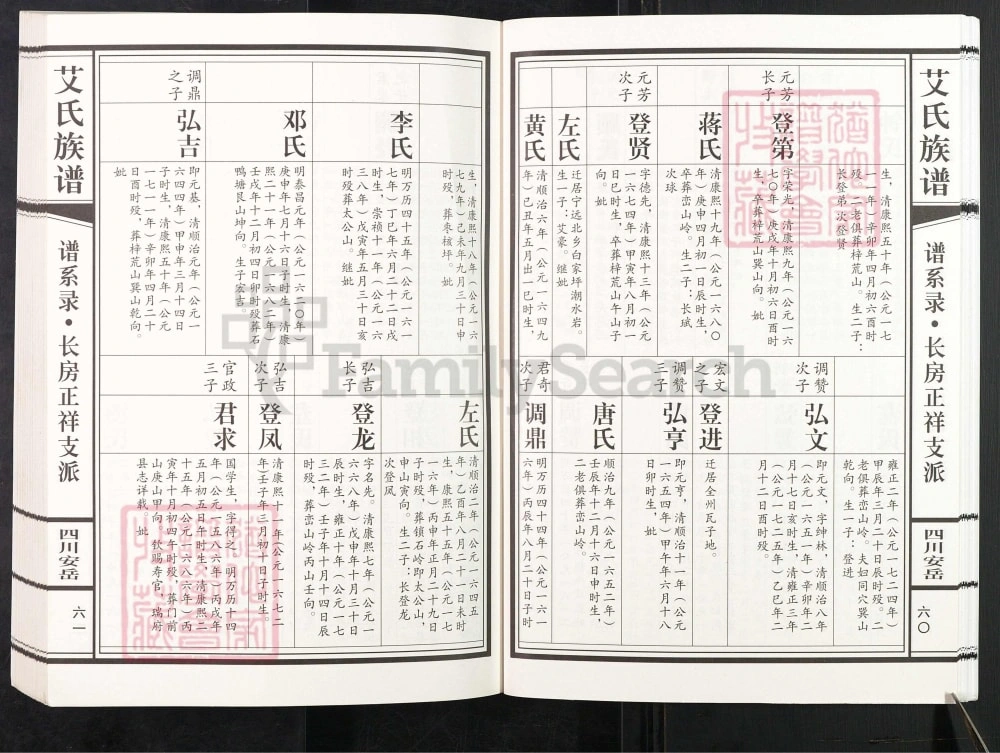 艾氏族谱
谱系录·长房正祥支派
四川安岳
六〇
生，清康熙五十年（公元一七
一一年）辛卯年四月初六酉时
殁。二老俱葬梓荒山。生二子：
长登弟次登贤
元芳
长子
登第
字荣光，清康熙九年（公元一六
七〇年）庚戌年十月初六日酉时
生，卒葬梓荒山巽山向。妣
蒋氏
清康熙十九年（公元一六八〇
年）庚申年四月初一日辰时生，
卒葬峦山岭。生二子：长珷
次球
元芳
次子
登贤
字德先，清康熙十三年（公元
一六七四年）甲寅年八月初一
日巳时生，卒葬梓荒山午山子
向。妣
左氏
迁居宁远北乡白家坪潮水岩。
生一子：艾豪。继妣
黄氏
清顺治六年（公元一六四九
年）己丑年五月出一巳时生，
雍正二年（公元一七二四年）
甲辰年三月二十日辰时殁。二
老俱葬峦山岭。夫妇同穴巽山
乾向。生一子：登进
调赞
次子
弘文
即元文，字绅林，清顺治八年
（公元一六五一年）辛卯年二
月十七亥时生，清雍正三年
（公元一七二五年）乙巳年二
月十二日酉时殁。
宏文
之子
登进
迁居全州瓦子地。
调赞
三子
弘亨
即元亨，清顺治十一年（公元
一六五四年）甲午年六月十八
日卯时生，妣
唐氏
顺治九年（公元一六五二年，
壬辰年十二月十六日申时生，
二老俱葬峦山岭。
君奇
次子
调鼎
明万历四十四年（公元一六一
六年）丙辰年八月二十日子时
艾氏族谱
谱系录·长房正祥支派
四川安岳
六一
生，清康熙十八年（公元一六
七九年）己未年九月三十日申
时殁，葬枣核坪。妣
李氏
明万历四十五年（公元一六一
七年）丁巳年六月二十二日戌
时生，崇祯十一年（公元一六
三八年）戊寅年五月三十日亥
时殁葬太公山。继妣
邓氏
明泰昌元年（公元一六二〇年）
庚申年七月十六日子时生，清康
熙二十一年（公元一六八二年）
壬戌年十二月初四日卯时殁葬石
鸭塘艮山坤向。生子宏吉。
调鼎
之子
弘吉
即元基，清顺治元年（公元一
六四四年）甲申年三月十四日
子时生，清康熙五十年（公元
一七一一年）辛卯年四月二十
日酉时殁，葬梓荒山巽山乾向。
妣
左氏
清顺治二年（公元一六四五
年）乙酉年八月二十一日未时
生，康熙五十五年（公元一七
一六年）丙申年正月二十九日
子时殁，葬锁石岭即太公山，
申山寅向。生二子：长登龙
次登凤
弘吉
长子
登龙
字名先。清康熙七年（公元一
六六八年）戊申年十月三十日
辰时生，雍正十年（公元一七
三二年）壬子年十月十四日辰
时殁，葬峦山岭丙山壬向。
弘吉
次子
登凤
清康熙十一年（公元一六七二
年）壬子年三月初十日子时生。
官政
三子
君求
国学生，字得之，明万历十四
年（公元一五八六年）丙戌年
五月初五日午时生，清康熙二
十五年（公元一六八六年）丙
寅年十月初四午时殁，葬门前
山庚山甲向。钦赐寿官，瑞府
县志详载。妣
FamilySearch